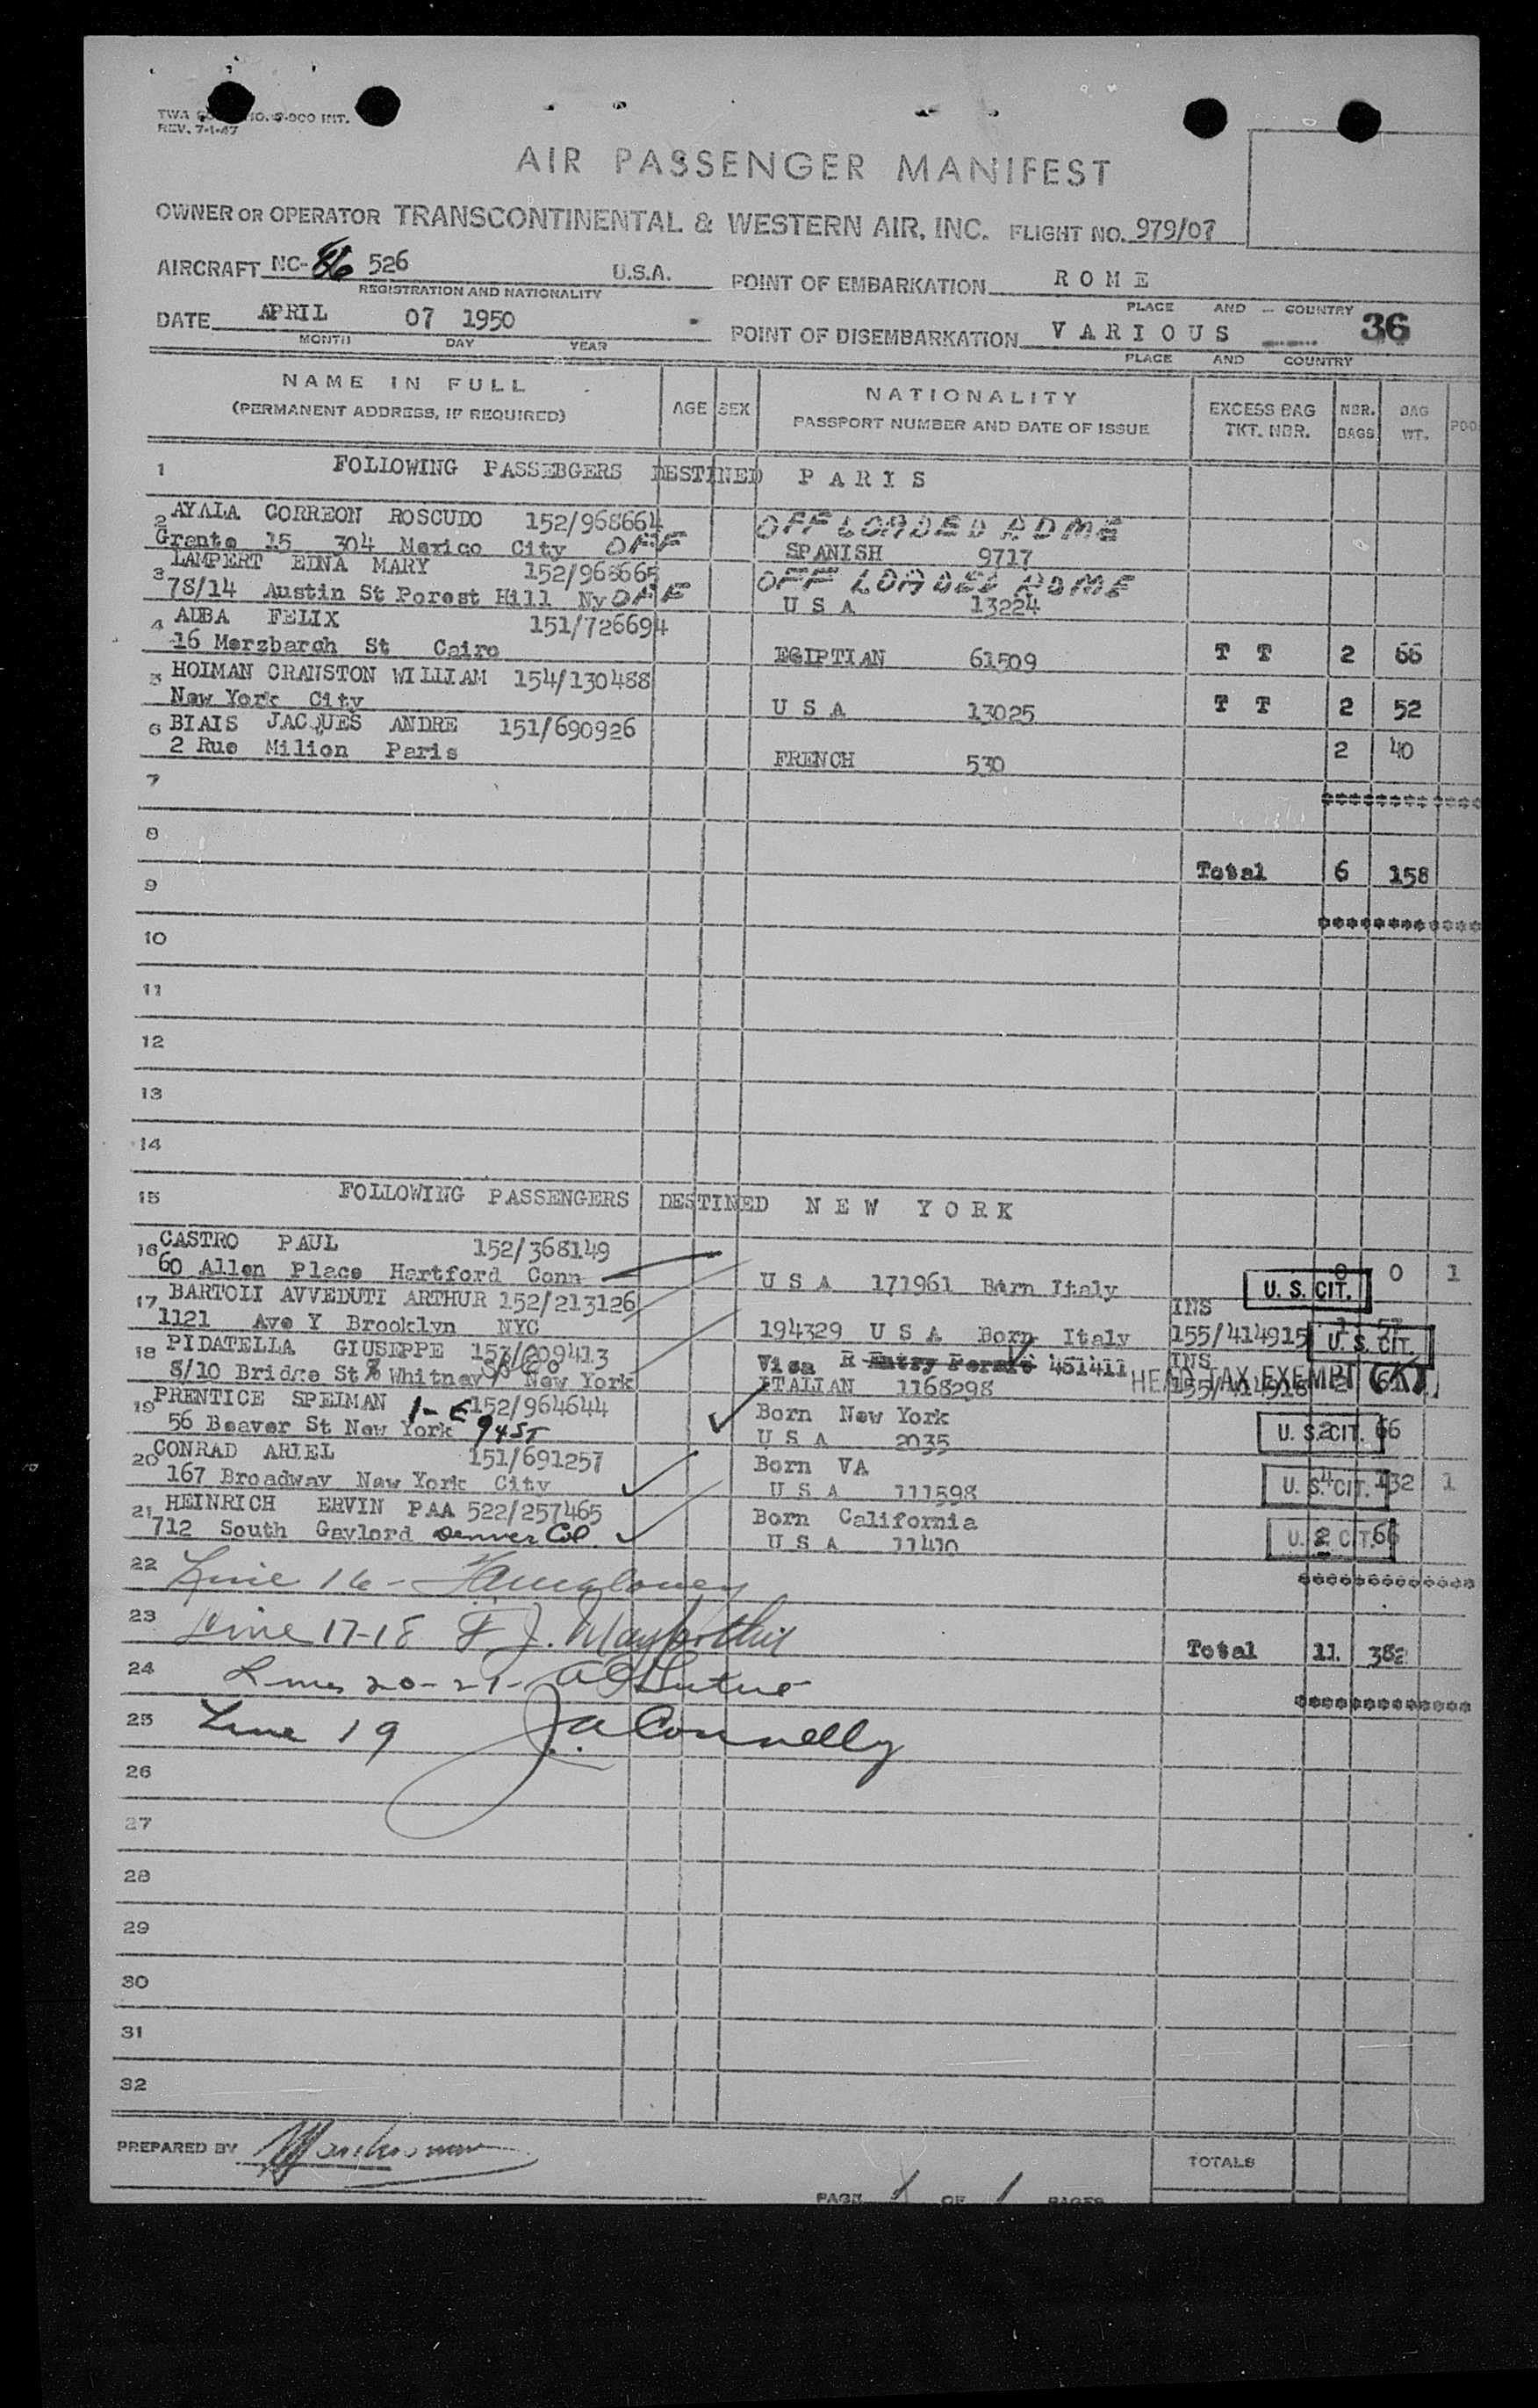 REV. 7-1-47
AIR PASSENGER MANIFEST
OWNER OR OPERATOR TRANSCONTINENTAL & WESTERN AIR, INC. FLIGHT NO. 979/07
AIRCRAFT NC-86 526 U.S.A. POINT OF EMBARKATION ROME
REGISTRATION AND NATIONALITY PLACE AND COUNTRY
DATE APRIL 07 1950 POINT OF DISEMBARKATION VARIOUS 36
MONTH DAY YEAR PLACE AND COUNTRY
NAME IN FULL AGE SEX NATIONALITY EXCESS BAG NBR. BAG
(PERMANENT ADDRESS, IF REQUIRED) PASSPORT NUMBER AND DATE OF ISSUE TKT. NBR. BAGS WT.
1 FOLLOWING PASSEBGERS DESTINED PARIS
2 AYALA CORREON ROSCUDO 152/968664 OFF LOADED ROME
Grante 15 304 Mexico City OFF SPANISH 9717
3 LAMPERT EDNA MARY 152/968665 OFF LOADED ROME
78/14 Austin St Forest Hill Ny OFF U S A 13224
4 ALBA FELIX 151/726694
16 Merzbarch St Cairo EGIPTIAN 61509 T T 2 66
5 HOIMAN CRANSTON WILLIAM 154/130488
New York City U S A 13025 T T 2 52
6 BIAIS JACQUES ANDRE 151/690926
2 Rue Milion Paris FRENCH 530 2 40
7
8
Total 6 158
9
10
11
12
13
14
15 FOLLOWING PASSENGERS DESTINED NEW YORK
16 CASTRO PAUL 152/368149
60 Allen Place Hartford Conn U S A 171961 Born Italy U.S. CIT. 0 0 1
17 BARTOLI AVVEDUTI ARTHUR 152/213126 INS
1121 Ave Y Brooklyn NYC 194329 U S A Born Italy 155/414915 1 57 U.S. CIT.
18 PIDATELLA GIUSEPPE 157/209413 Visa R Entry Permit 451411 INS
8/10 Bridge St % Whitney New York ITALIAN 1168298 HEAD TAX EXEMPT
19 PRENTICE SPEIMAN 152/964644 Born New York
56 Beaver St New York 1-E 94 ST U S A 2035 U.S. CIT. 2 66
20 CONRAD ARIEL 151/691257 Born VA
167 Broadway New York City U S A 111598 U.S. CIT. 4 132 1
21 HEINRICH ERVIN PAA 522/257465 Born California
712 South Gaylord Denver Col U S A 11410 U.S. CIT. 2 66
22 Line 16-
23 Line 17-18 F. J.
Total 11 382
24 Lines 20-21-
25 Line 19 J. A. Connelly
26
27
28
29
30
31
32
PREPARED BY
TOTALS
PAGE 1 OF 1 PAGES